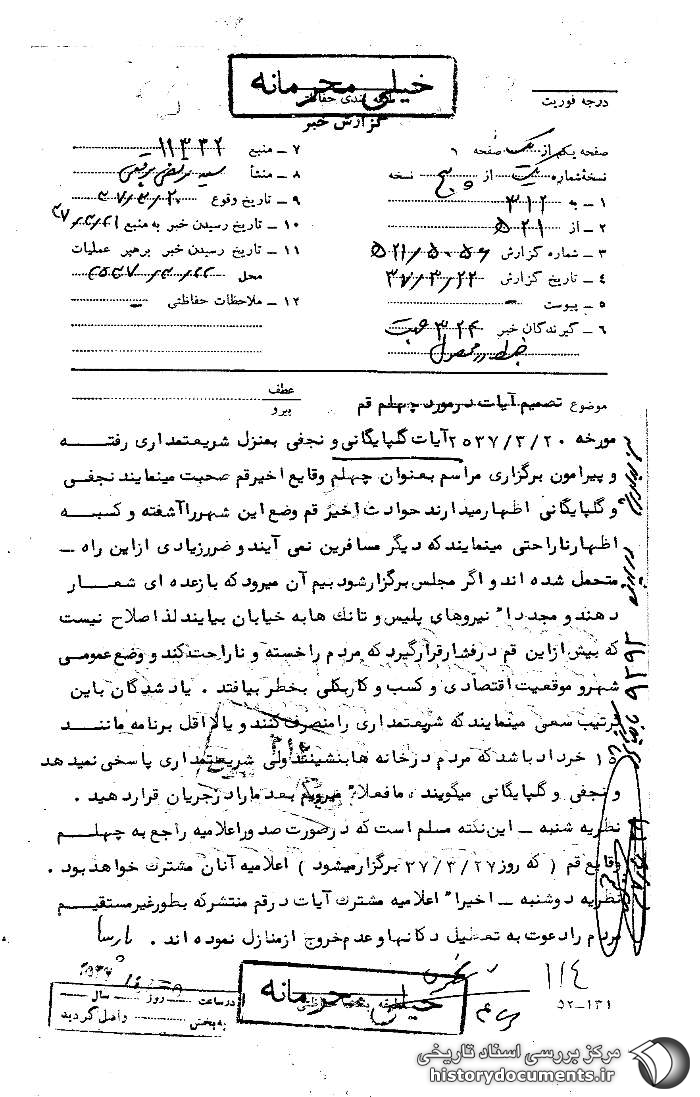 خیلی محرمانه
طبقه بندی حفاظتی
گزارش خبر
درجه فوریت
صفحه یکم از یک صفحه
نسخه شماره یک از پنج نسخه
۱ ـ به ۳۱۲
۲ ـ از ۵۲۱
۳ ـ شماره گزارش ۵۲۱/۵۰۵۶
۴ ـ تاریخ گزارش ۳۷/۳/۲۲
۵ ـ پیوست ـ
۶ ـ گیرندگان خبر ۳۲۴
۷ ـ منبع ۱۱۳۳۲
۸ ـ منشأ سید مرتضی برقعی
۹ ـ تاریخ وقوع ۳۷/۳/۲۰
۱۰ ـ تاریخ رسیدن خبر به منبع ۳۷/۳/۲۱
۱۱ ـ تاریخ رسیدن خبر برهبر عملیات
محل ۲۵۳۷/۳/۲۲
۱۲ ـ ملاحظات حفاظتی ـ
موضوع تصمیم آیات درمورد چهلم قم
عطف
پیرو
مورخه ۲۵۳۷/۳/۲۰ آیات گلپایگانی و نجفی بمنزل شریعتمداری رفته
و پیرامون برگزاری مراسم بعنوان چهلم وقایع اخیرقم صحبت مینمایند نجفی
و گلپایگانی اظهارمیدارند حوادث اخیر قم وضع این شهرراآشفته و کسبه
اظهارناراحتی مینمایند که دیگر مسافرین نمی آیند و ضررزیادی ازاین راه ـ
متحمل شده اند و اگر مجلس برگزارشود بیم آن میرود که بازعده ای شعار
دهند و مجددا" نیروهای پلیس و تانک هابه خیابان بیایند لذا صلاح نیست
که بیش ازاین قم درفشارقرارگیرد که مردم راخسته و ناراحت کند و وضع عمومی
شهرو موقعیت اقتصادی و کسب و کاربکلی بخطر بیافتد . یاد شدگان باین
ترتیب سعی مینمایند که شریعتمداری رامنصرف کنند و یالااقل برنامه مانند
۱۵ خرداد باشد که مردم درخانه هابنشینند ولی شریعتمداری پاسخی نمیدهد
و نجفی و گلپایگانی میگویند ، مافعلا" میرویم بعد مارادرجریان قراردهید .
نظریه شنبه ـ این نکته مسلم است که درصورت صدوراعلامیه راجع به چهلم
وقایع قم ( که روز ۳۷/۳/۲۷ برگزارمیشود ) اعلامیه آنان مشترک خواهد بود .
نظریه دوشنبه ـ اخیرا" اعلامیه مشترک آیات درقم منتشرکه بطورغیرمستقیم
مردم رادعوت به تعطیل دکانهاو عدم خروج ازمنازل نموده اند . پارسا
۹۲۹۳
۱۱۴
۵۲-۱۳۱
خیلی محرمانه
طبقه بندی حفاظتی
درساعت روز سال
به بخش واصل گردید
مرکز بررسی اسناد تاریخی
historydocuments.ir